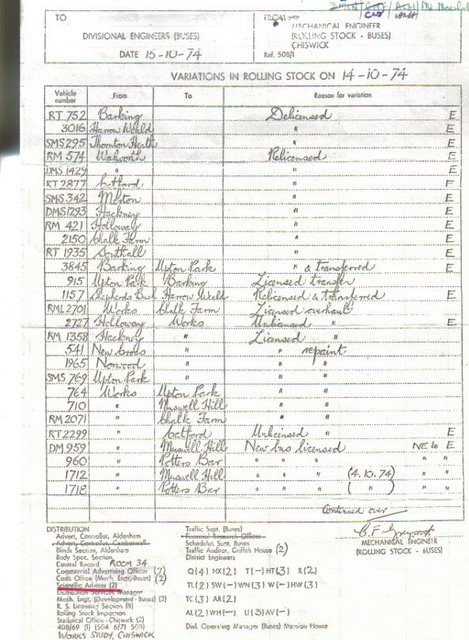 TO
DIVISIONAL ENGINEERS (BUSES)
DATE 15-10-74
FROM
MECHANICAL ENGINEER
(ROLLING STOCK - BUSES)
CHISWICK
Ref. 508/1
VARIATIONS IN ROLLING STOCK ON 14-10-74
Vehicle number From To Reason for variation
RT 752 Barking Delicensed E
3016 Harrow Weald " E
SMS 295 Thornton Heath " E
RM 574 Walworth Relicensed E
DMS 1429 " " E
RT 2877 Catford " E
SMS 342 Merton " E
DMS 1293 Hackney " E
RM 421 Holloway " E
2150 Chalk Farm " E
RT 1935 Southall " E
3845 Barking Upton Park " & transferred E
915 Upton Park Barking Licensed transfer
1157 Shepherds Bush Harrow Weald Relicensed & transferred E
RML 2701 Works Chalk Farm Licensed overhaul
2727 Holloway Works Unlicensed " E
RM 1358 Hackney " Licensed "
541 New Cross " " repaint
1965 Norwood " " "
SMS 769 Upton Park " " "
764 Works Upton Park " "
710 " Muswell Hill " "
RM 2071 " Chalk Farm " "
RT 2299 " Catford Unlicensed " E
DM 959 " Muswell Hill New bus licensed NE to E
960 " Potters Bar " " " " "
1712 " Muswell Hill " " " (4.10.74) " "
1718 " Potters Bar " " " ( " ) " "
Continued over
MECHANICAL ENGINEER
(ROLLING STOCK - BUSES)
DISTRIBUTION
Advert. Controller, Aldenham
Advert. Controller, Camberwell
Blinds Section, Aldenham
Body Spec. Section,
Central Record ROOM 34
Commercial Advertising Officer (7)
Costs Office (Mech. Engr-Buses) (2)
Scientific Adviser (2)
Distribution Services Manager
Mech. Engr. (Development - Buses) (2)
R. S. Licensing Section (8)
Rolling Stock Inspection
Statistical Office - Chiswick (2)
WORKS STUDY, CHISWICK
Traffic Supt. (Buses)
Financial Research Officer
Schedules Supt. Buses
Traffic Auditor, Griffith House (2)
District Engineers
Q(4) NX(2) T(-) HT(3) R(2)
TL(2) SW(-) WN(3) W(-) HW(3)
TC(3) AR(2)
AL(2) WH(-) U(3) AV(-)
Divl. Operating Manager (Buses) Mansion House